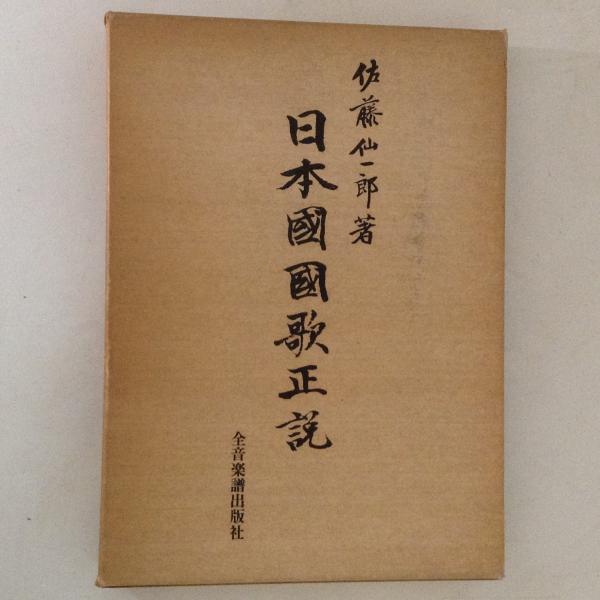 佐藤仙一郎著
日本國國歌正説
全音楽譜出版社